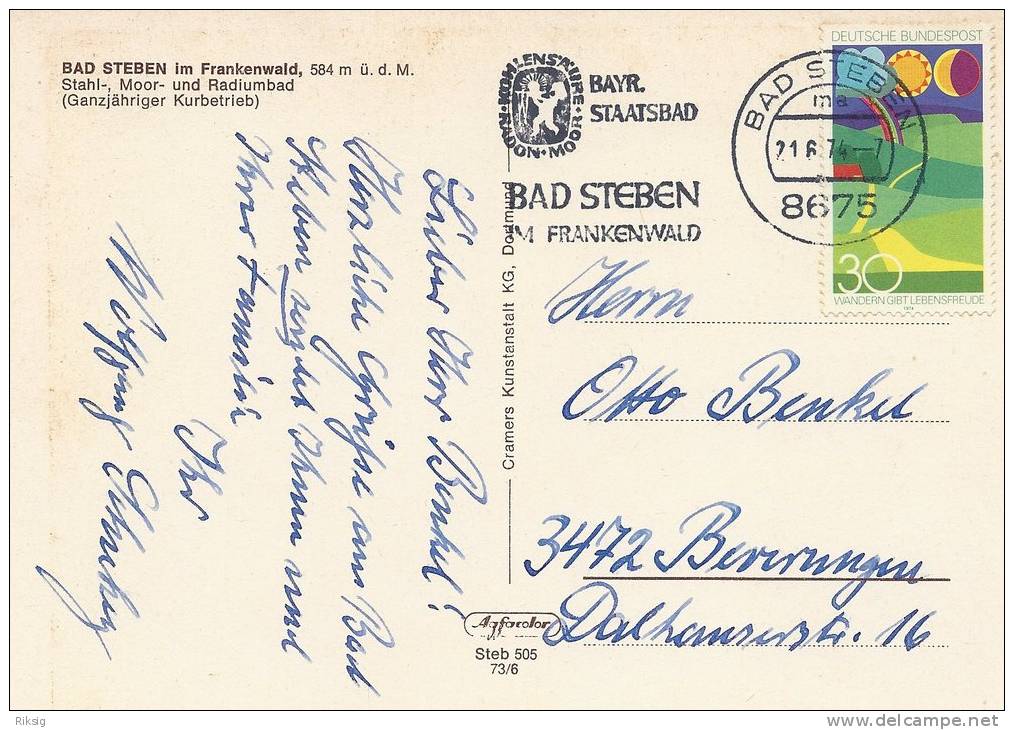 BAD STEBEN im Frankenwald, 584 m ü. d. M.
Stahl-, Moor- und Radiumbad
(Ganzjähriger Kurbetrieb)
KOHLENSÄURE • MOOR • RADON •
BAYR.
STAATSBAD
BAD STEBEN
IM FRANKENWALD
BAD STEBEN
ma
21.6.74-7
8675
DEUTSCHE BUNDESPOST
30
WANDERN GIBT LEBENSFREUDE
1974
Lieber Herr Benkel!
Herzliche Grüße aus Bad
Steben sendet Ihnen und
Ihrer Familie
Ihr
Wolfgang
Cramers Kunstanstalt KG, Dortmund
Herrn
Otto Benkel
3472 Beverungen
Dalhauserstr. 16
Agfacolor
Steb 505
73/6
Riksig
www.delcampe.net